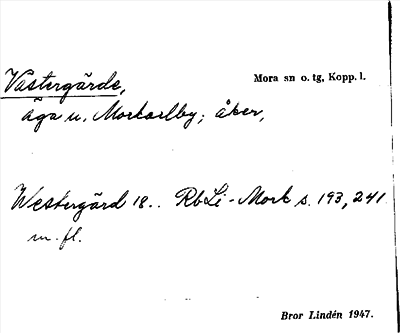 Västergärde,
Mora sn o. tg, Kopp. l.
äga u. Morkarlby; åker,
Westergård 18.. RbLi-Mork s. 193, 241
m. fl.
Bror Lindén 1947.